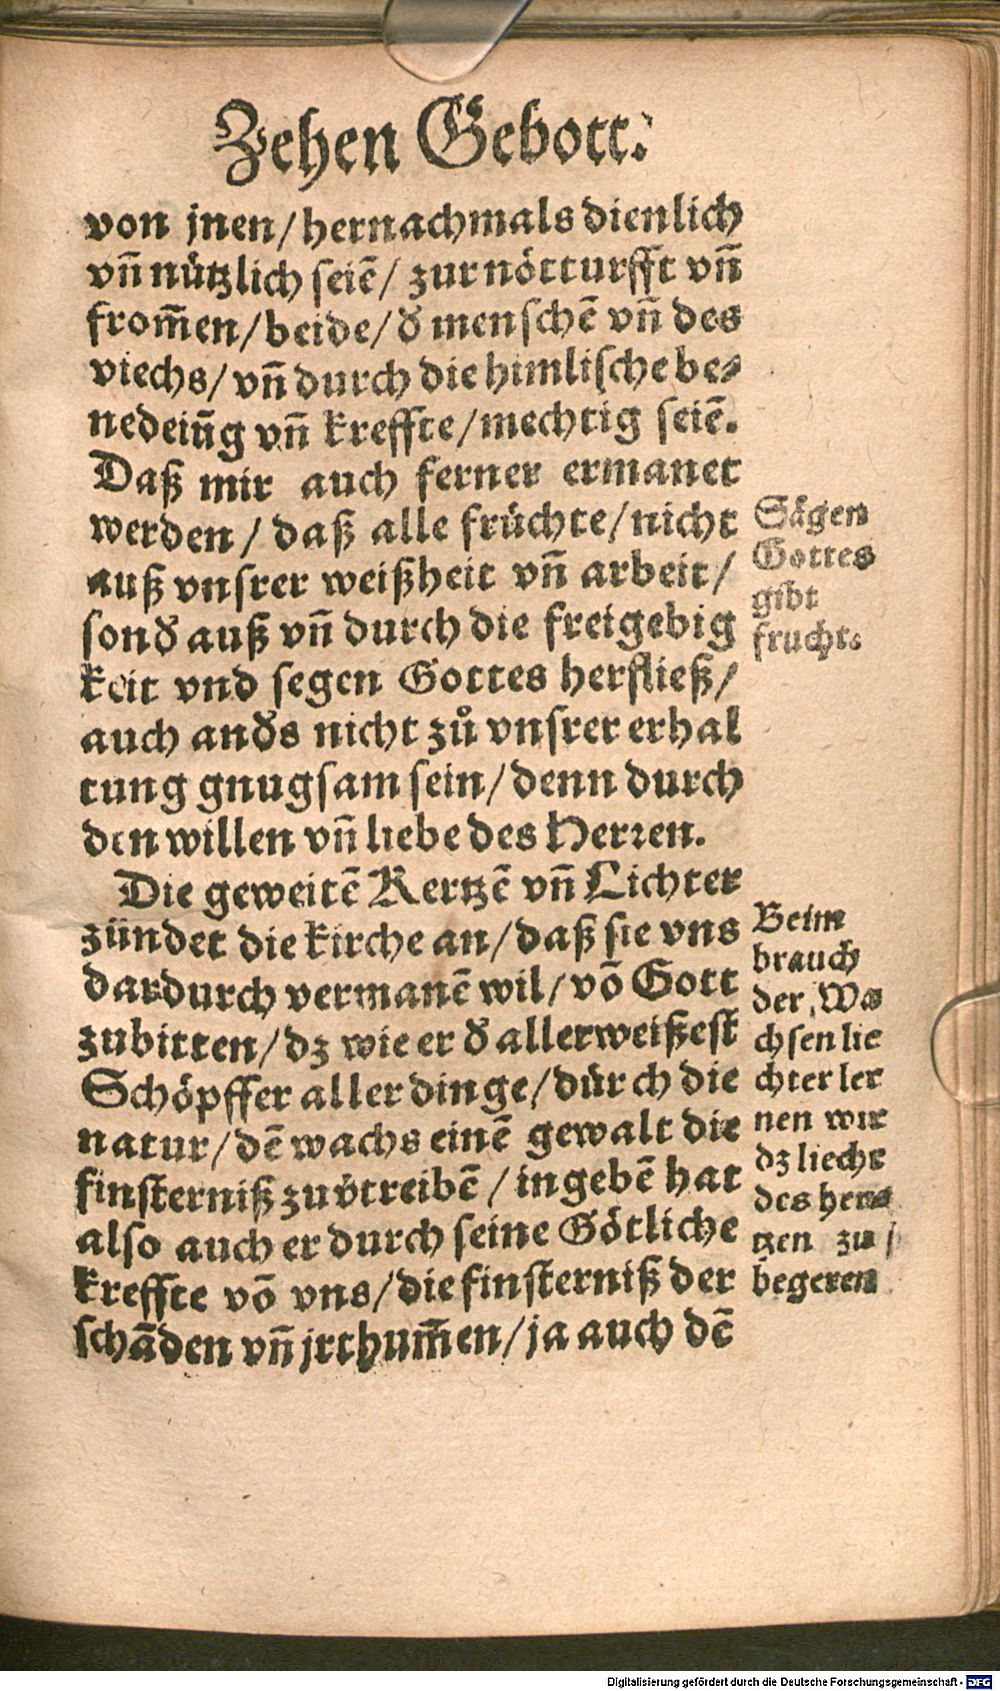 Zehen Gebott.
von jnen / hernachmals dienlich
vñ nützlich seiē / zur nötturfft vñ
from̃en / beide / ð menschē vñ des
viechs / vñ durch die himlische be-
nedeiũg vñ kreffte / mechtig seiē.
Daß mir auch ferner ermanet
werden / daß alle früchte / nicht
auß vnsrer weißheit vñ arbeit /
sonð auß vñ durch die freigebig
keit vnd segen Gottes herfließ /
auch anðs nicht zů vnsrer erhal
tung gnugsam sein / denn durch
den willen vñ liebe des Herren.
Die geweitē Kertzē vñ Lichter
zündet die kirche an / daß sie vns
dardurch vermanē wil / võ Gott
zubitten / dz wie er ð allerweißest
Schöpffer aller dinge / dürch die
natur / dē wachs einē gewalt die
finsterniß zuv̈treibē / ingebē hat
also auch er durch seine Götliche
kreffte võ vns / die finsterniß der
schãden vñ jrthum̃en / ja auch dē
Sägen
Gottes
gibt
frucht.
Beim
brauch
der Wa
chsen lie
chter ler
nen wir
dz liecht
des her-
tzen zu
begeren
Digitalisierung gefördert durch die Deutsche Forschungsgemeinschaft - DFG